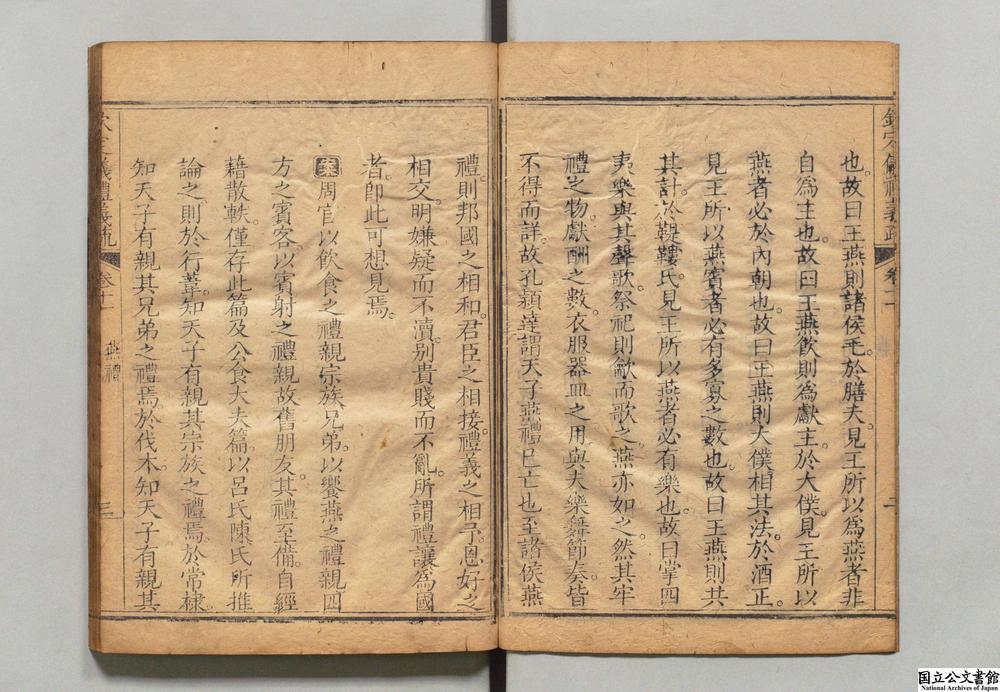 欽定儀禮義疏 卷十一 燕禮 二
也故曰王燕則諸侯毛於膳夫見王所以為燕者非
自為主也故曰王燕飲則為獻主於大僕見王所以
燕者必於內朝也故曰王燕則大僕相其法於酒正
見王所以燕賓者必有多寡之數也故曰王燕則共
其計於鞮鞻氏見王所以燕者必有樂也故曰掌四
夷樂與其聲歌祭祀則龡而歌之燕亦如之然其牢
禮之物獻酬之數衣服器皿之用與夫樂舞節奏皆
不得而詳故孔穎達謂天子燕禮已亡也至諸侯燕
禮則邦國之相和君臣之相接禮義之相予恩好之
相交明嫌疑而不瀆別貴賤而不亂所謂禮讓為國
者即此可想見焉
案周官以飲食之禮親宗族兄弟以饗燕之禮親四
方之賓客以賓射之禮親故舊朋友其禮至備自經
藉散軼僅存此篇及公食大夫篇以呂氏陳氏所推
論之則於行葦知天子有親其宗族之禮焉於常棣
知天子有親其兄弟之禮焉於伐木知天子有親其
欽定儀禮義疏 卷十一 燕禮 三
国立公文書館
National Archives of Japan